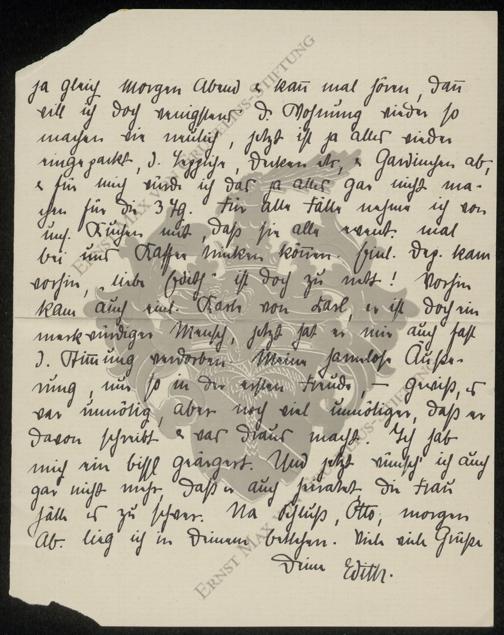 ja gleich morgen Abend & kann mal hören, dann
will ich doch wenigstens d. Wohnung wieder so
machen wie neulich, jetzt ist ja alles wieder
eingepackt, d. Teppiche, Decken etc, & Gardinchen ab,
& für mich würde ich das ja alles gar nicht ma-
chen für die 3 Tg. Für alle Fälle nehme ich von
Kuchen mit, daß sie alle event. mal
bei uns Kaffee trinken können. Dep. kam
vorhin, liebe ist doch zu nett! Vorhin
kam auch eine Karte von Karl, er ist doch ein
merkwürdiger Mensch, jetzt hat er mir auch fast
d. Stimmung verdorben. Meine harmlose Äuße-
rung, nur so in der ersten Freude – gewiß, es
war unnötig, aber noch viel unnötiger, daß er
davon schreibt & was draus macht. Ich hab
mich ein bissl geärgert. Und jetzt wünsch ich auch
gar nicht mehr, daß er auch heiratet die Frau
hätte es zu schwer. Na Schluß, Otto, morgen
Ab. lieg ich in Deinem Bettchen. Viele viele Grüße
Deine Edith.
ERNST MAX VON GRUNELIUS-STIFTUNG